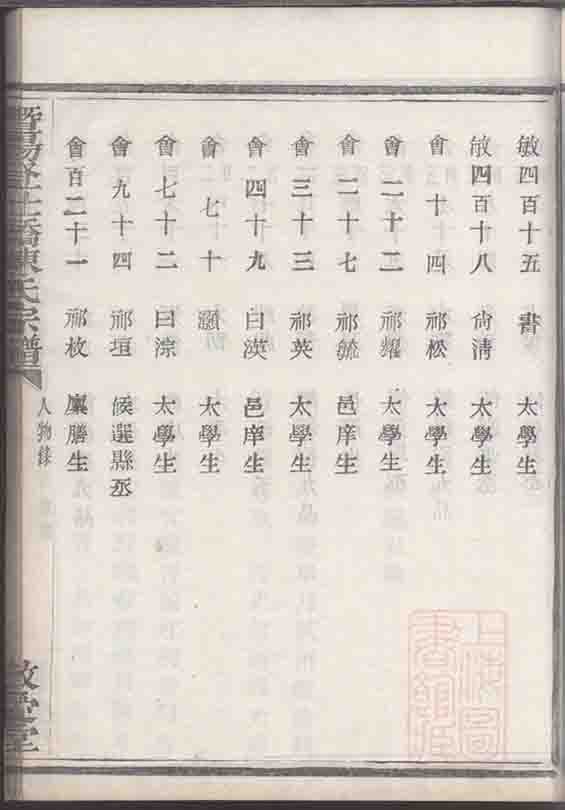 敏四百十五 書 太學生
敏四百十八 尙淸 太學生
會十四 祁松 太學生
會二十二 祁耀 太學生
會二十七 祁毓 邑庠生
會三十三 祁英 太學生
會四十九 曰渶 邑庠生
會七十 灝 太學生
會七十二 曰淙 太學生
會九十四 祁垣 候選縣丞
會百二十一 祁枚 廩膳生
陳氏宗譜
人物錄
上海圖書館藏